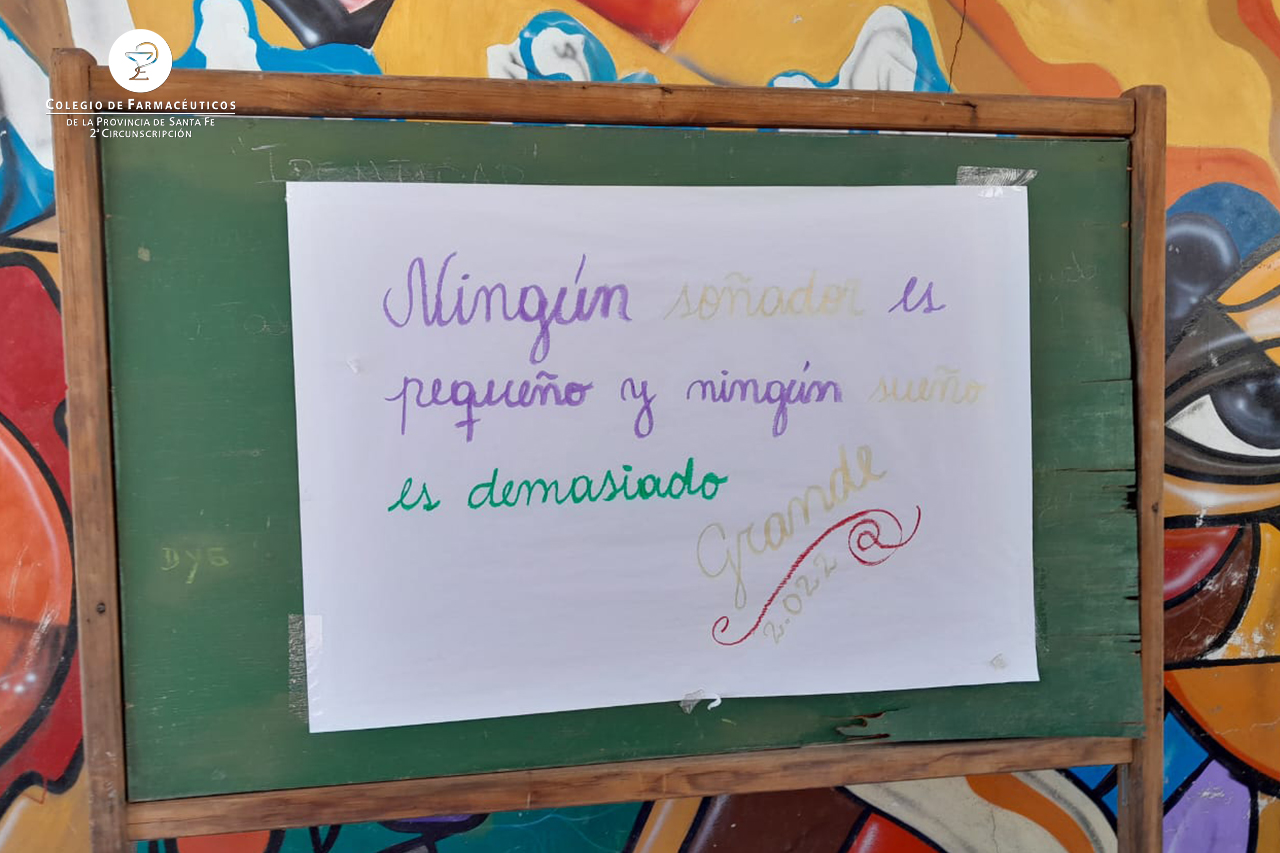 COLEGIO DE FARMACÉUTICOS
DE LA PROVINCIA DE SANTA FE
2ª CIRCUNSCRIPCIÓN
IDENTIDAD
Ningún soñador es
pequeño y ningún sueño
es demasiado
Grande
2.022
DyG